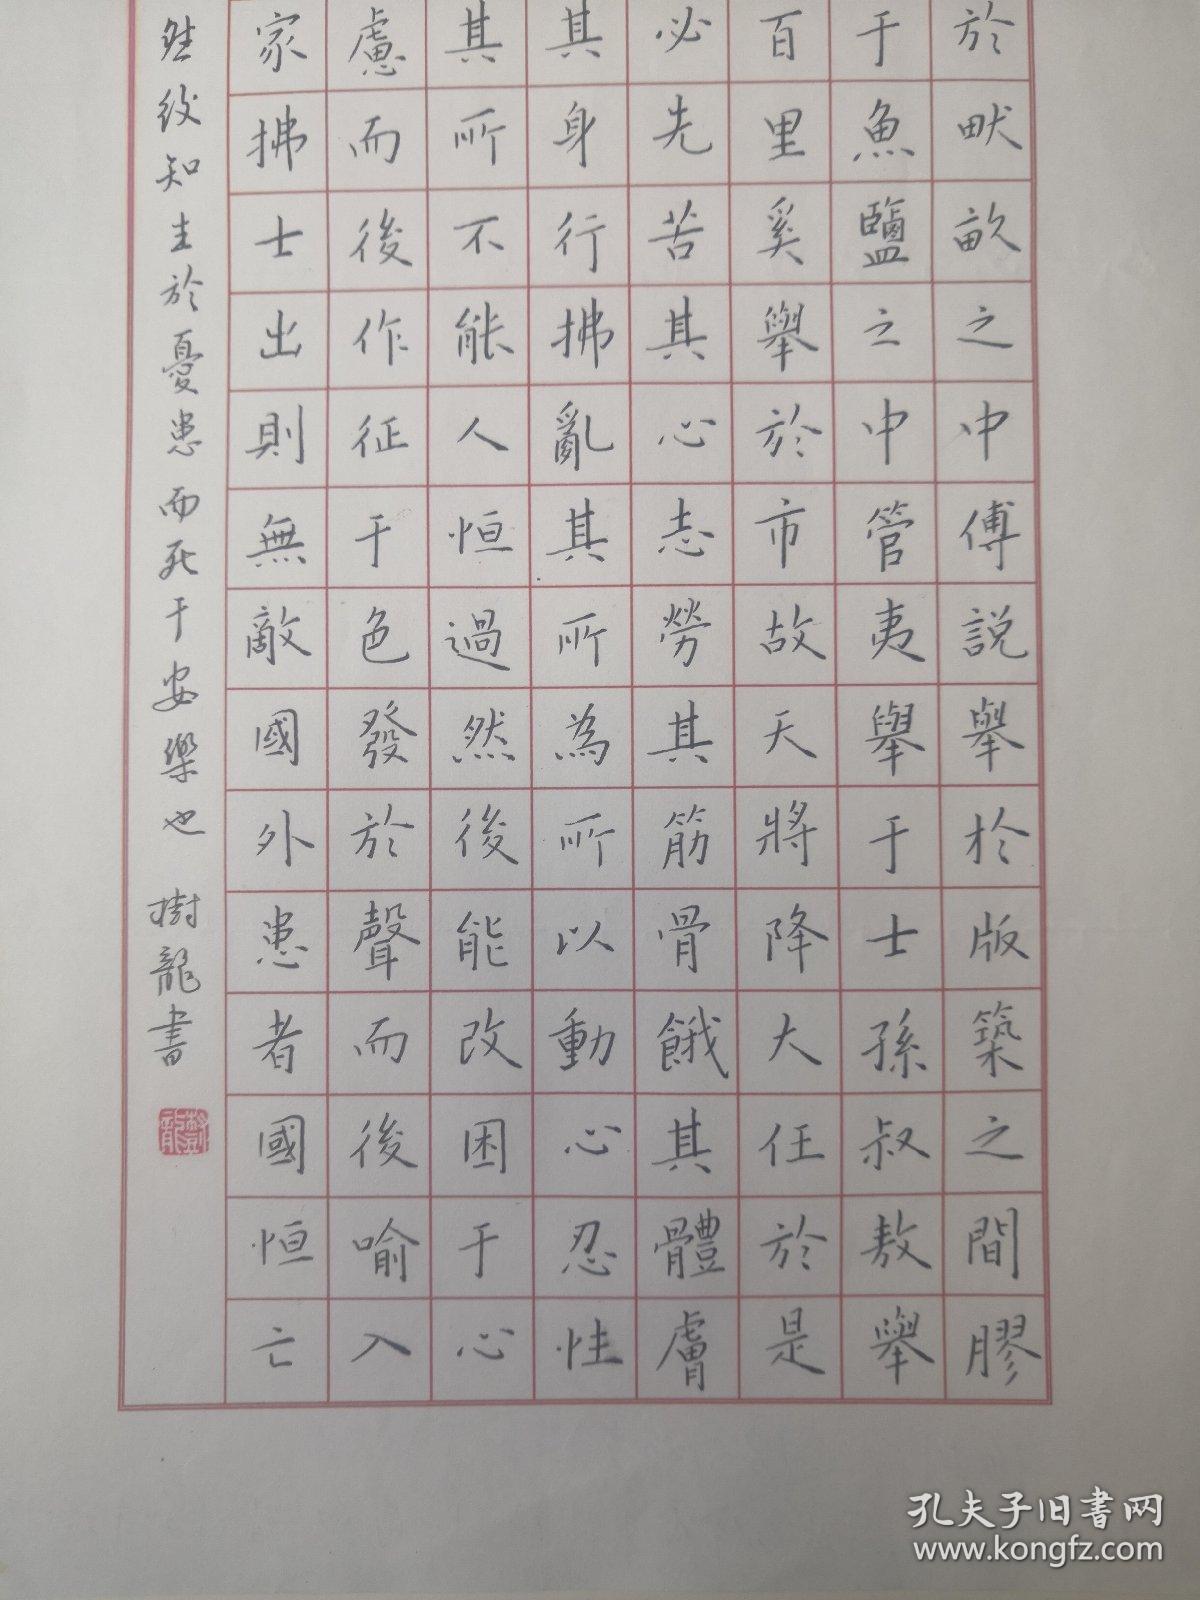 於畎畝之中傅説舉於版築之間膠
于魚鹽之中管夷舉于士孫叔敖舉
百里奚舉於市故天將降大任於是
必先苦其心志勞其筋骨餓其體膚
其身行拂亂其所為所以動心忍性
其所不能人恒過然後能改困于心
慮而後作征于色發於聲而後喻入
家拂士出則無敵國外患者國恒亡
然後知生於憂患而死于安樂也 樹龍書
孔夫子旧书网
www.kongfz.com